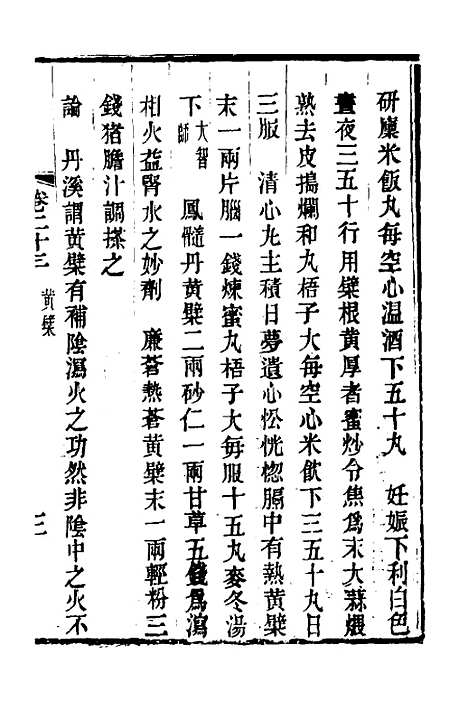 研廩米飯丸每空心温酒下五十丸　妊娠下利白色
晝夜三五十行用檗根黄厚者蜜炒令焦爲末大蒜煨
熟去皮搗爛和丸梧子大每空心米飲下三五十丸日
三服　清心丸主積日夢遺心忪恍惚膈中有熱黄檗
末一兩片腦一錢煉蜜丸梧子大每服十五丸麥冬湯
下大智師　鳳髓丹黄檗二兩砂仁一兩甘草五錢爲瀉
相火益腎水之妙劑　臁瘡熱瘡黄檗末一兩輕粉三
錢猪膽汁調搽之
論　丹溪謂黄檗有補陰瀉火之功然非陰中之火不
卷二十三　黄檗　三